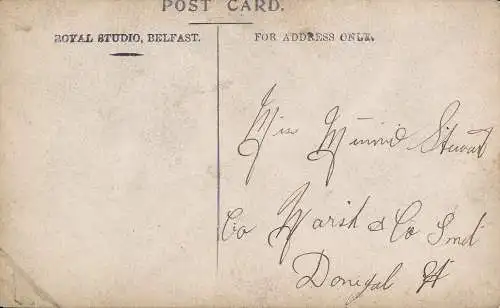 POST CARD.
ROYAL STUDIO, BELFAST.
FOR ADDRESS ONLY.
Miss Minnie Stewart
Co Marsh & Co Lmd
Donegal